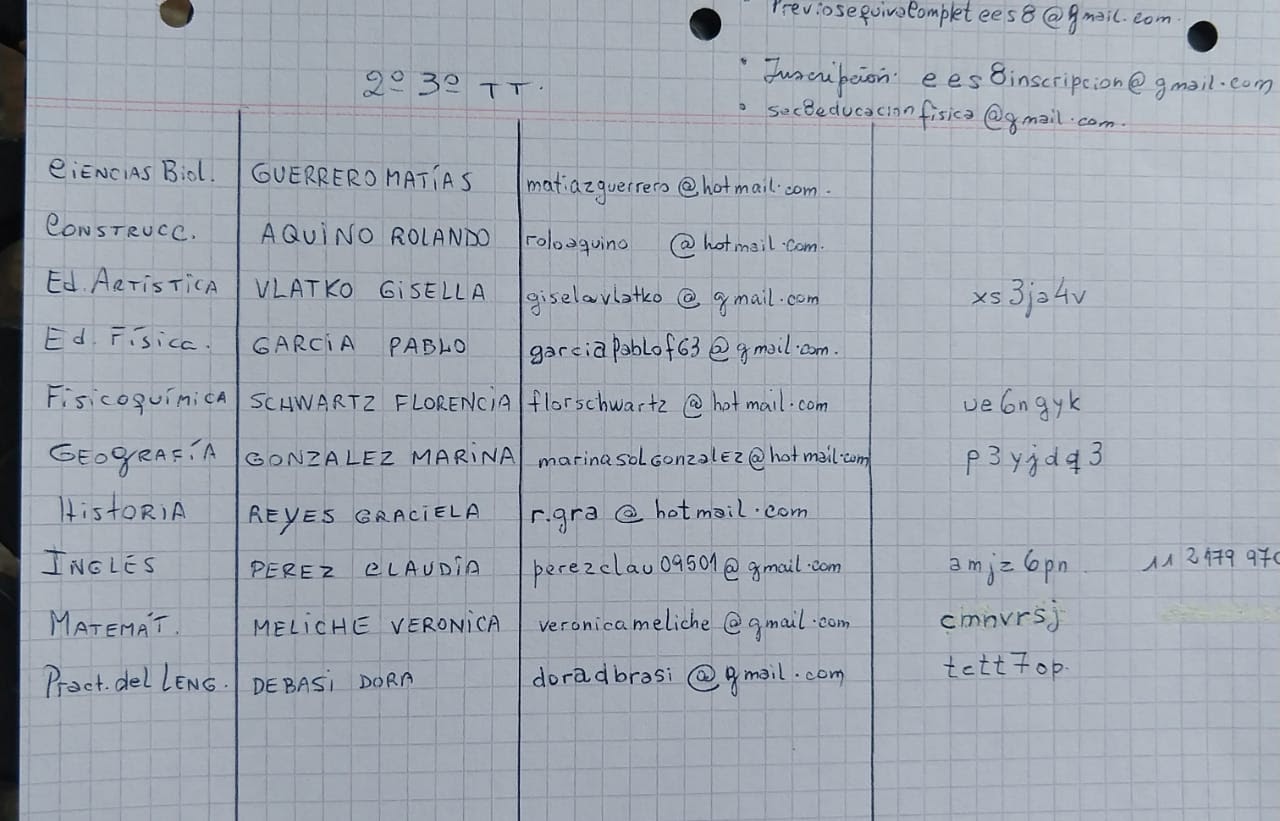 Previosequivalomplet ees8@gmail.com.
• Inscripción: ees8inscripcion@gmail.com
• sec8educacionfisica@gmail.com.
2º 3º TT.
CiENCIAS Biol. GUERRERO MATÍAS matiazguerrero@hotmail.com.
CONSTRUCC. AQUiNO ROLANDO roloaquino @hotmail.com.
Ed. ARTíSTiCA VLATKO GiSELLA giselavlatko @ gmail.com xs3ja4v
Ed. Física. GARCíA PABLO garciapablof63@gmail.com.
FisicoquímicA SCHWARTZ FLORENCiA florschwartz @hotmail.com ue6ngyk
GEOgRAFíA GONZALEZ MARiNA marinasolGonzalEz@hotmail.com p3yjdq3
HistORiA REYES GRACiELA r.gra @ hotmail.com
INGLÉS PEREZ CLAUDiA perezclau09501@gmail.com amjz6pn 11 2479 970
MATEMÁT. MELiCHE VERONICA veronicameliche @gmail.com cmnvrsj
Pract. del LENG. DEBASi DORA doradbrasi @gmail.com tctt7op.